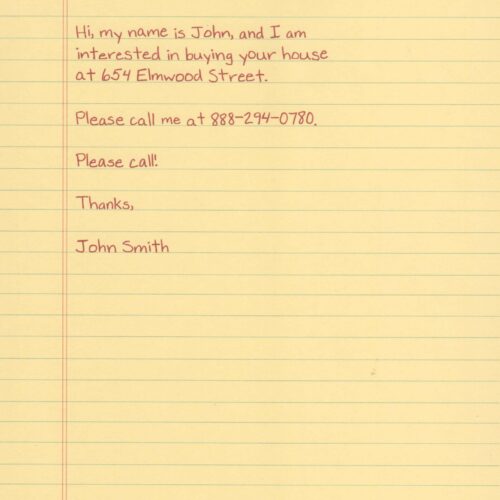 Hi, my name is John, and I am
interested in buying your house
at 654 Elmwood Street.
Please call me at 888-294-0780.
Please call!
Thanks,
John Smith